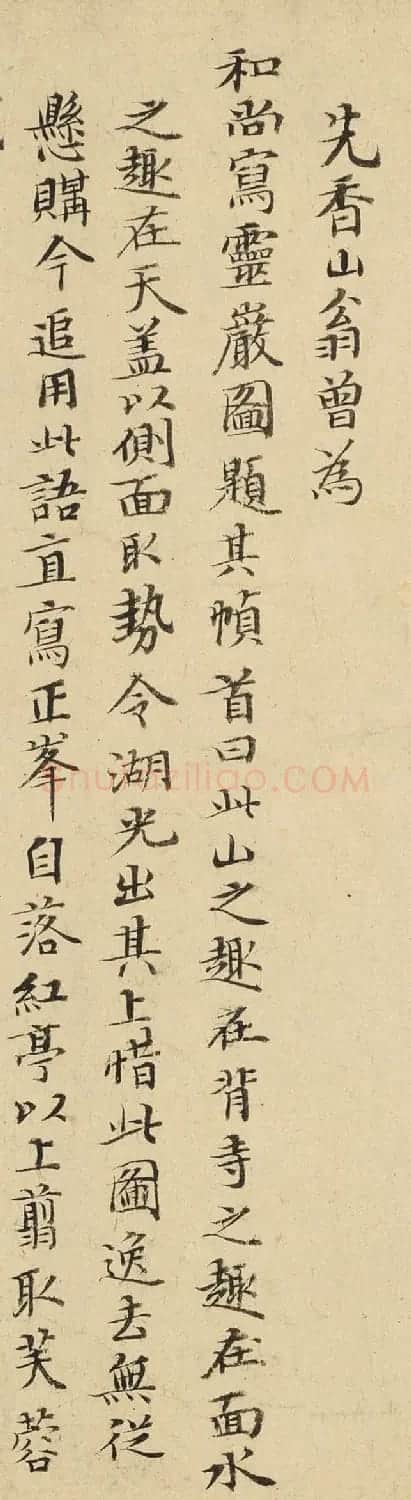 先香山翁曾為
和尚寫靈巖圖題其幀首曰此山之趣在背寺之趣在面水
之趣在天盖以側面取勢令湖光出其上惜此圖逸去無從
懸購今追用此語直寫正峯自落紅亭以上翦取芙蓉